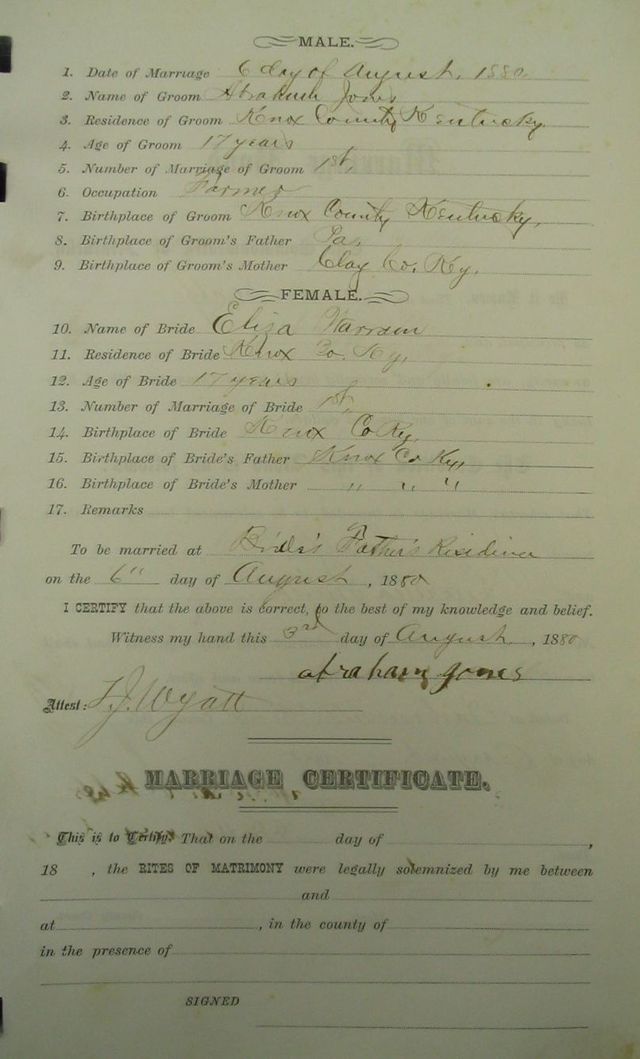 MALE.
1. Date of Marriage 6 day of August, 1880
2. Name of Groom Abraham Jones
3. Residence of Groom Knox County Kentucky
4. Age of Groom 17 years
5. Number of Marriage of Groom 1st,
6. Occupation Farmer
7. Birthplace of Groom Knox County Kentucky,
8. Birthplace of Groom's Father Va,
9. Birthplace of Groom's Mother Clay Co. Ky.
FEMALE.
10. Name of Bride Eliza
11. Residence of Bride Knox Co. Ky,
12. Age of Bride 17 years
13. Number of Marriage of Bride 1st,
14. Birthplace of Bride Knox Co Ky,
15. Birthplace of Bride's Father Knox Co Ky,
16. Birthplace of Bride's Mother " " "
17. Remarks
To be married at Bride's Father's Residence
on the 6" day of August, 1880
I CERTIFY that the above is correct, to the best of my knowledge and belief.
Witness my hand this 3rd day of August, 1880
abraham Jones
Attest: T.J. Wyatt
MARRIAGE CERTIFICATE.
This is to Certify: That on the day of ,
18 , the RITES OF MATRIMONY were legally solemnized by me between
and
at , in the county of
in the presence of
SIGNED